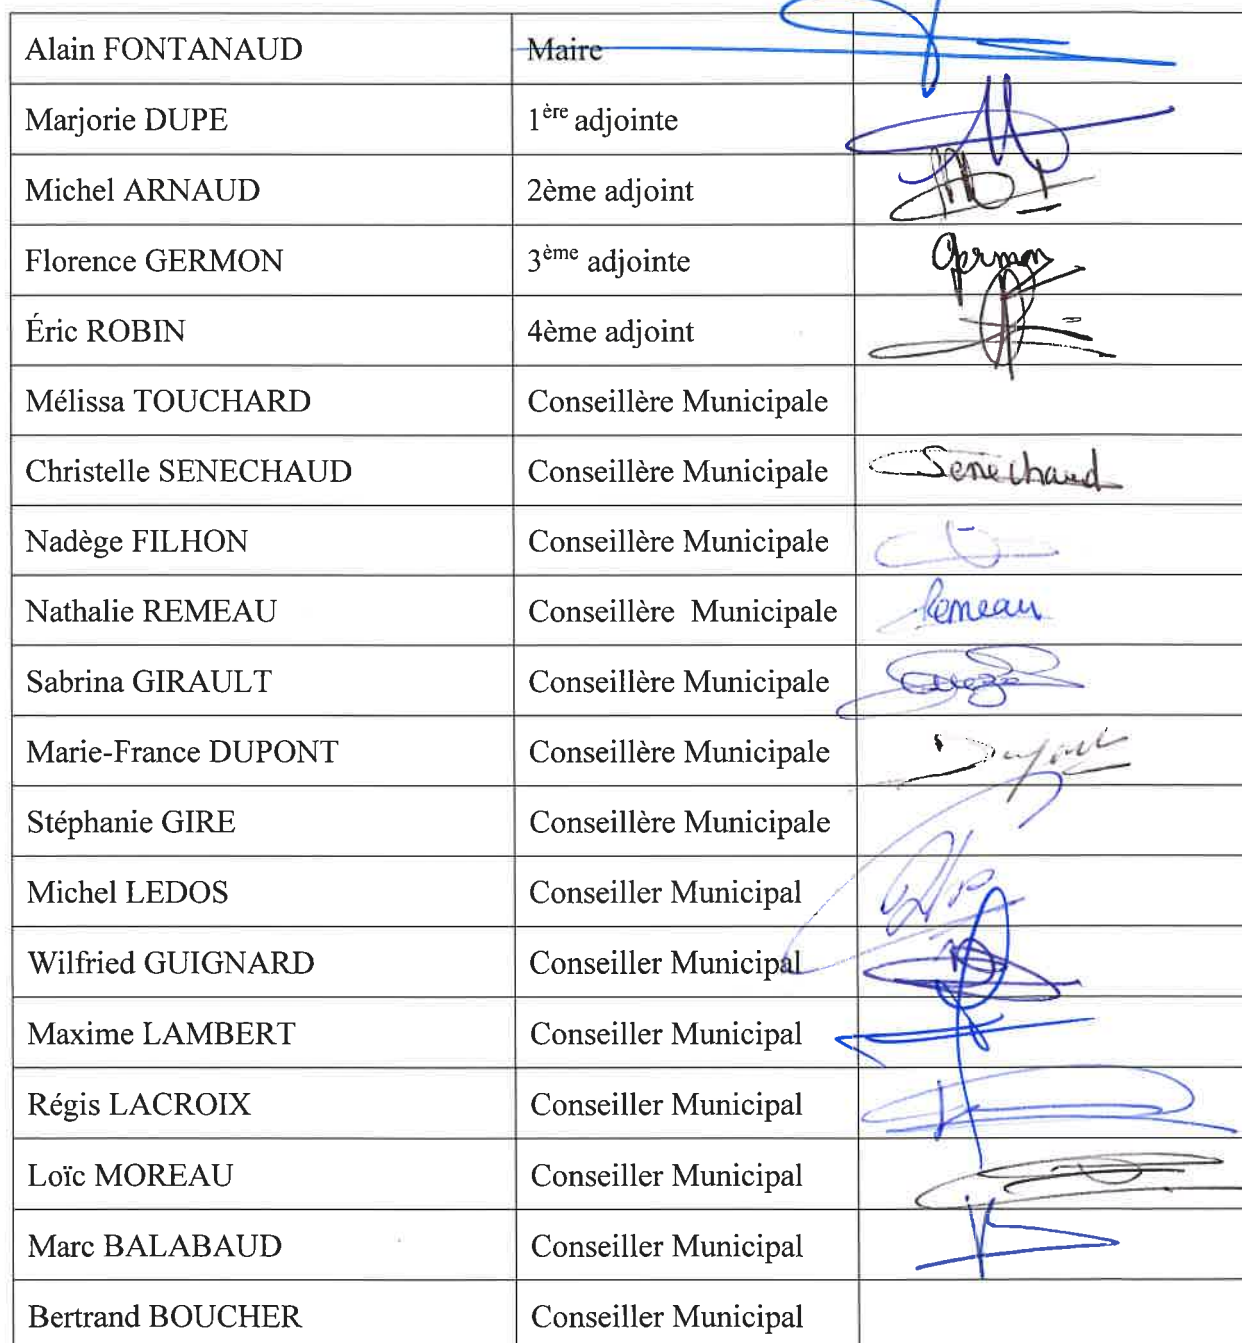 Alain FONTANAUD Maire
Marjorie DUPE 1ère adjointe
Michel ARNAUD 2ème adjoint
Florence GERMON 3ème adjointe Germon
Éric ROBIN 4ème adjoint
Mélissa TOUCHARD Conseillère Municipale
Christelle SENECHAUD Conseillère Municipale Senechaud
Nadège FILHON Conseillère Municipale
Nathalie REMEAU Conseillère Municipale Remeau
Sabrina GIRAULT Conseillère Municipale
Marie-France DUPONT Conseillère Municipale Dupont
Stéphanie GIRE Conseillère Municipale
Michel LEDOS Conseiller Municipal
Wilfried GUIGNARD Conseiller Municipal
Maxime LAMBERT Conseiller Municipal
Régis LACROIX Conseiller Municipal
Loïc MOREAU Conseiller Municipal
Marc BALABAUD Conseiller Municipal
Bertrand BOUCHER Conseiller Municipal